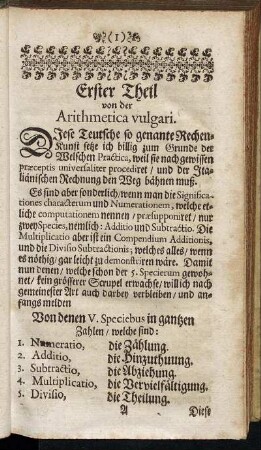 (1)
Erster Theil
von der
Arithmetica vulgari.
Diese Teutsche so genante Rechen-
Kunst setze ich billig zum Grunde der
Welschen Practica, weil sie nach gewissen
præceptis universaliter procediret / und der Ita-
liänischen Rechnung den Weg bähnen muß.
Es sind aber sonderlich, wenn man die Significa-
tiones characterum und Numerationem, welche et-
liche computationem nennen / præsupponiret, nur
zwey Species, nemlich: Additio und Subtractio. Die
Multiplicatio aber ist ein Compendium Additionis,
und die Divisio Subtractionis; welches alles / wenn
es nöthig / gar leicht zu demonstriren wäre. Damit
nun denen / welche schon der 5. Specierum gewoh-
net / kein grösserer Scrupel erwachse / will ich nach
gemeinester Art auch darbey verbleiben / und an-
fangs melden
Von denen V. Speciebus in gantzen
Zahlen / welche sind:
1. Numeratio, die Zählung.
2. Additio, die Hinzuthuung.
3. Subtractio, die Abziehung.
4. Multiplicatio, die Vervielfältigung.
5. Divisio, die Theilung.
A Diese